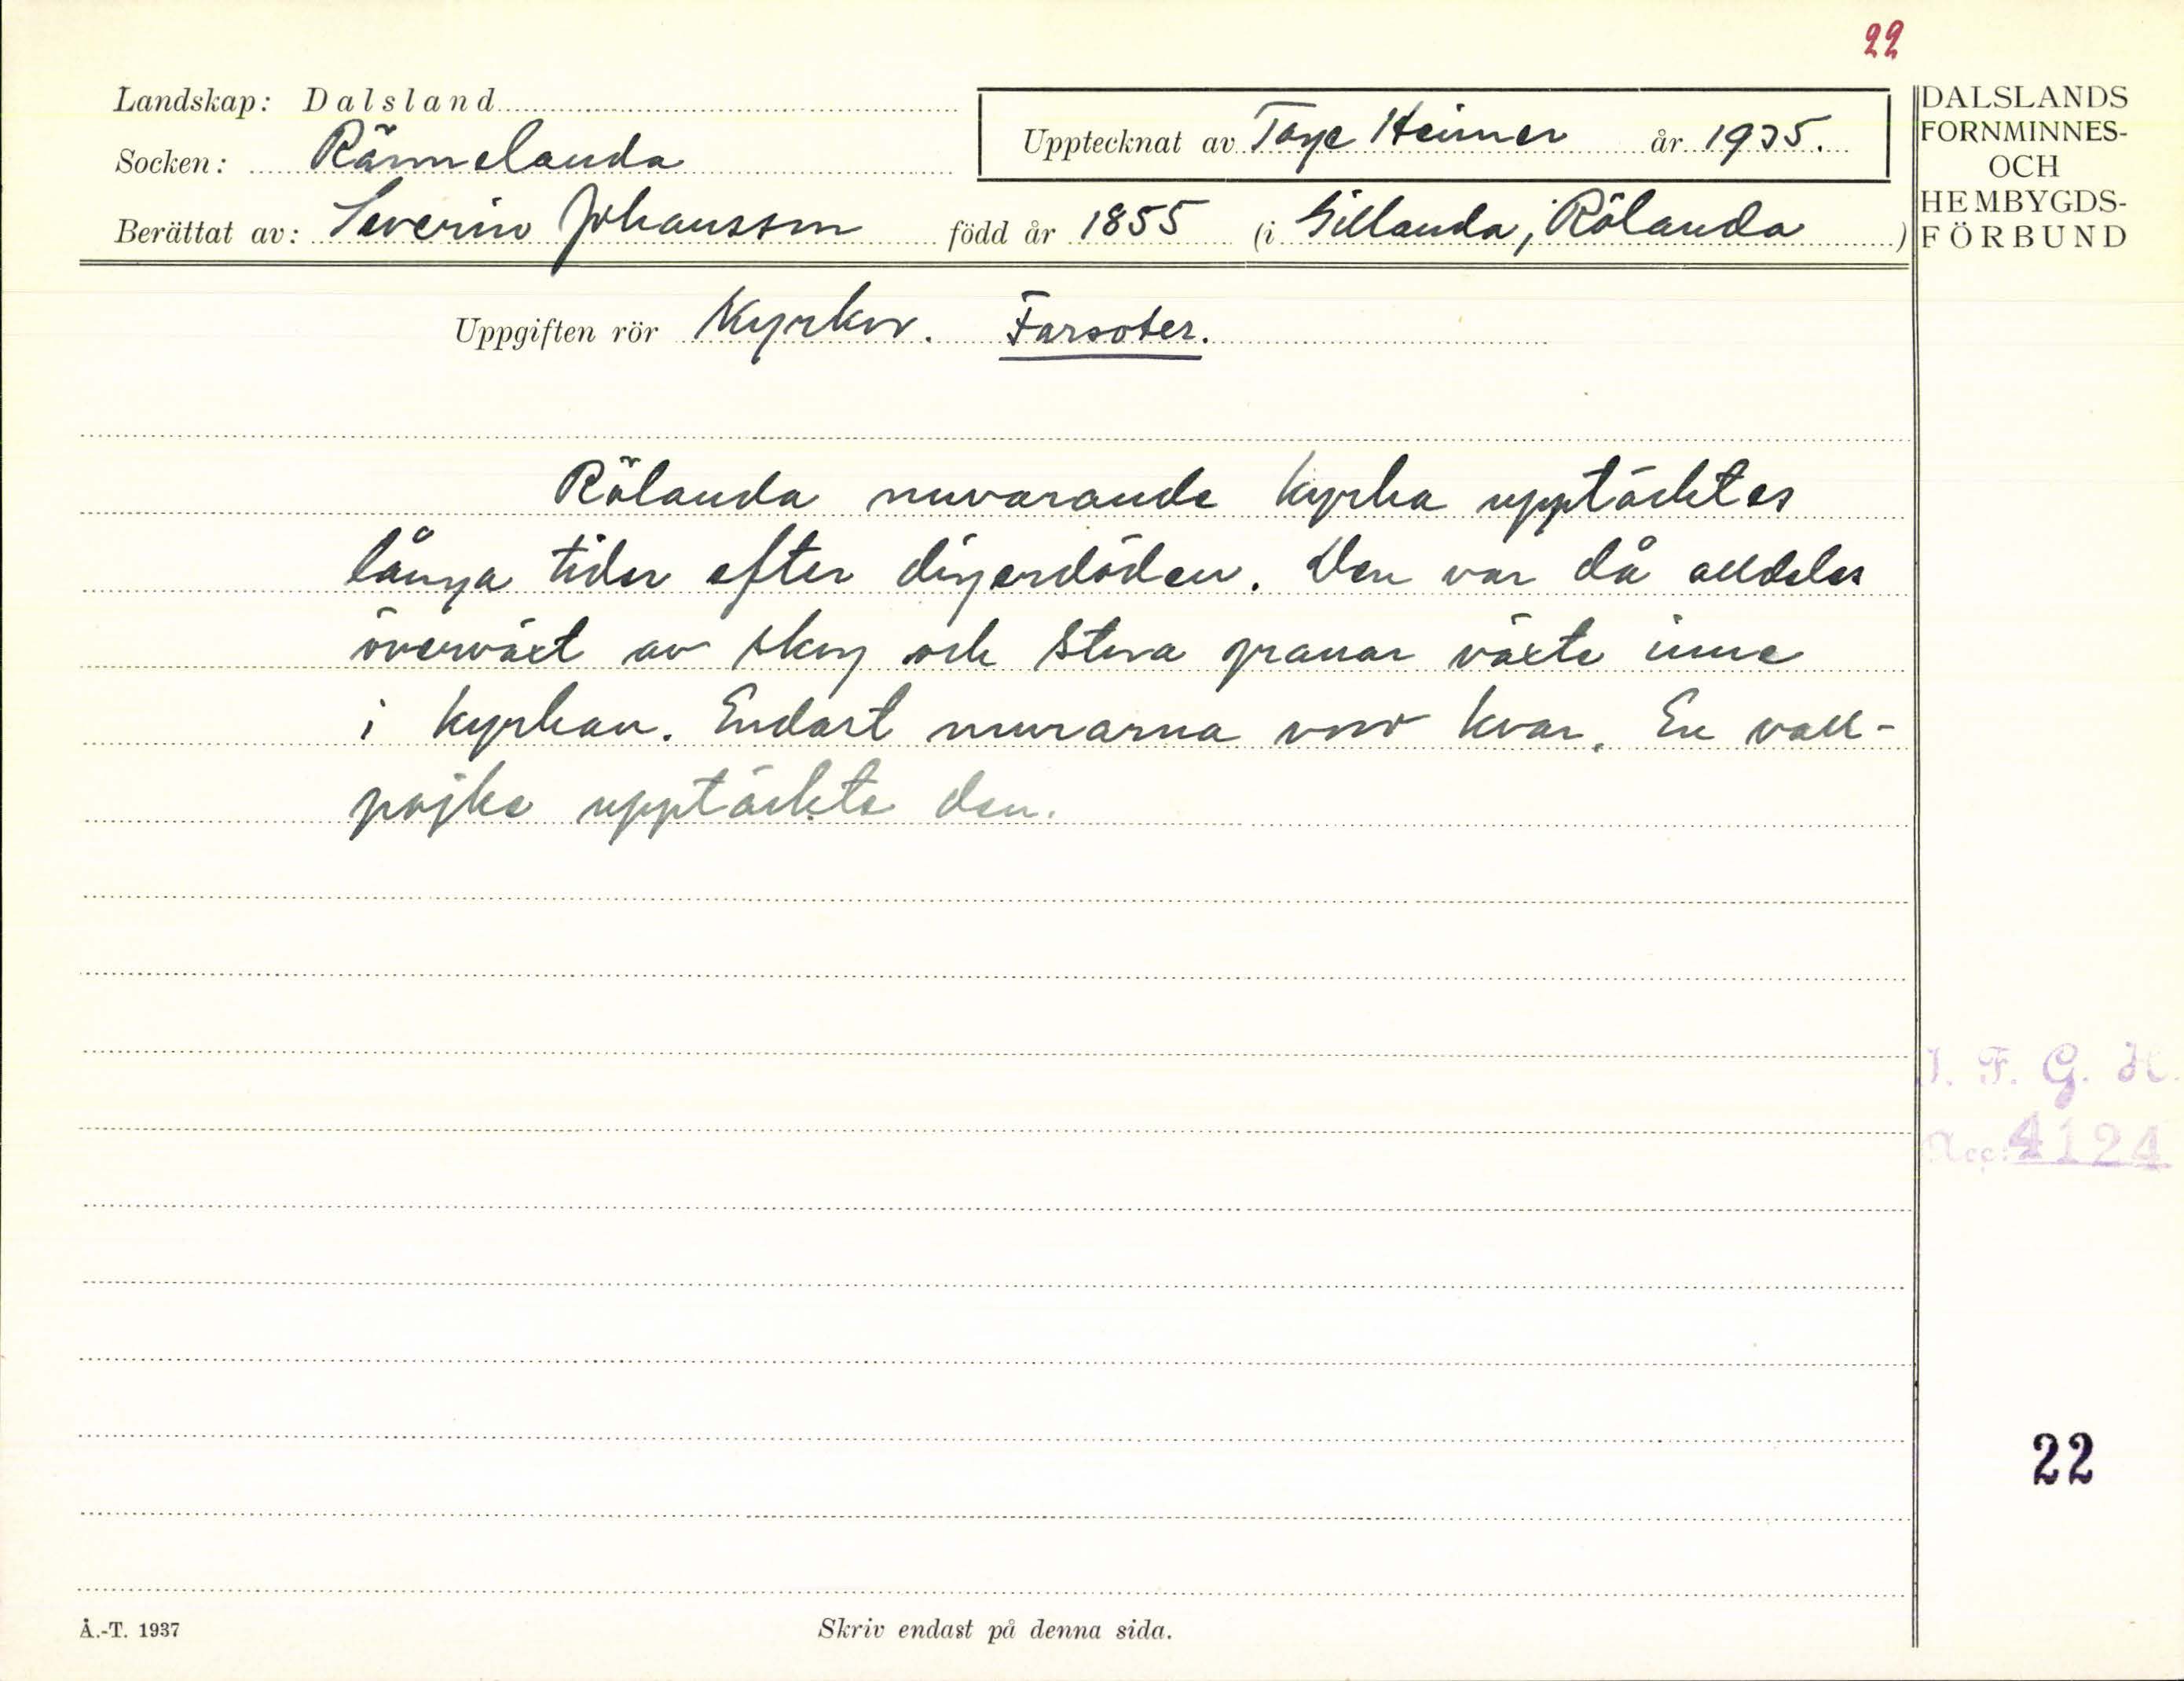 22
Landskap: Dalsland
Socken: Rännelanda
Upptecknat av Tage Heimer år 1935.
Berättat av: Severin Johansson född år 1855 (i Gillanda, Rölanda)
DALSLANDS
FORNMINNES-
OCH
HEMBYGDS-
FÖRBUND
Uppgiften rör Kyrkor. Farsoter.
Rölanda nuvarande kyrka upptäcktes
långa tider efter digerdöden. Den var då alldeles
överväxt av skog och stora granar växte inne
i kyrkan. Endast murarna voro kvar. En vall-
pojke upptäckte den.
I. F. G. H.
Acc: 4124
22
Å.-T. 1937
Skriv endast på denna sida.